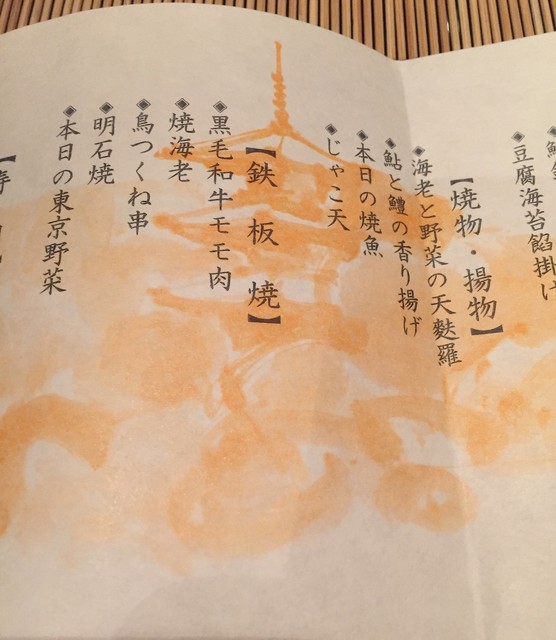 ◈豆腐海苔餡掛け
【焼物・揚物】
◈海老と野菜の天麩羅
◈鮎と鱧の香り揚げ
◈本日の焼魚
◈じゃこ天
【鉄板焼】
◈黒毛和牛モモ肉
◈焼海老
◈鳥つくね串
◈明石焼
◈本日の東京野菜